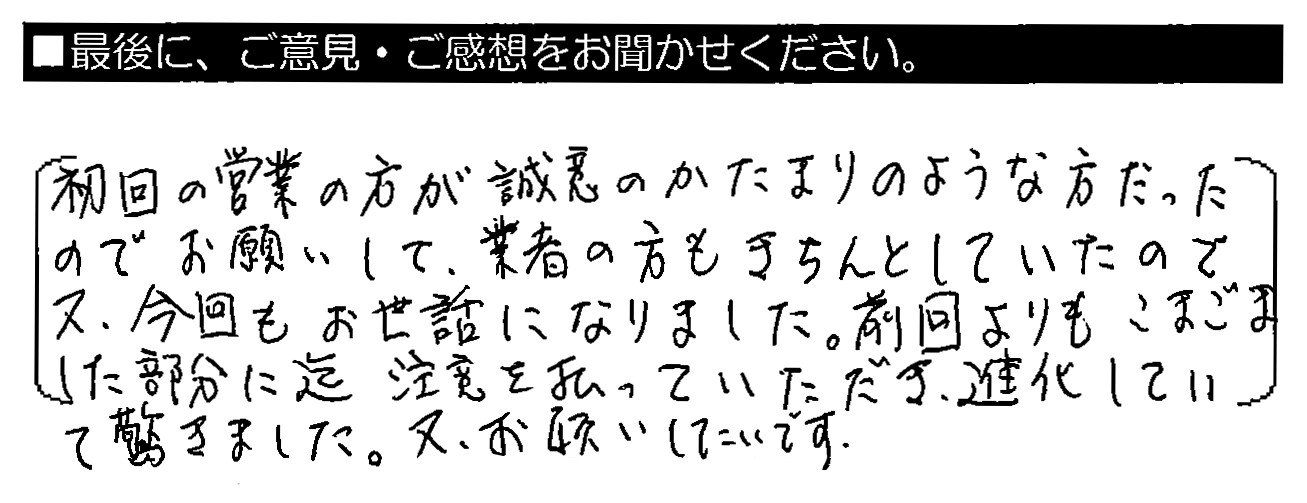 ■最後に、ご意見・ご感想をお聞かせください。
初回の営業の方が誠意のかたまりのような方だった
のでお願いして、業者の方もきちんとしていたので
又、今回もお世話になりました。前回よりもこまごま
した部分に迄注意を払っていただき、進化してい
て驚きました。又、お願いしたいです。